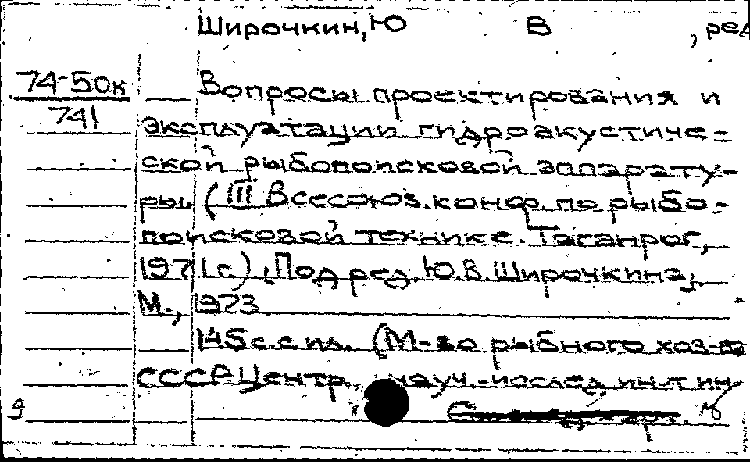 Широчкин, Ю В , ред
74-50к
741
Вопросы проектирования и
эксплуатации гидроакустиче-
ской рыбопоисковой аппарату-
ры. (III Всесоюз. конф. по рыбо-
поисковой технике. Таганрог,
1971 г.), Под ред. Ю.В. Широчкина,
М., 1973.
145 с. с ил. (М-во рыбного хоз-ва
СССР. Центр. науч.-исслед. ин-т ин-
9